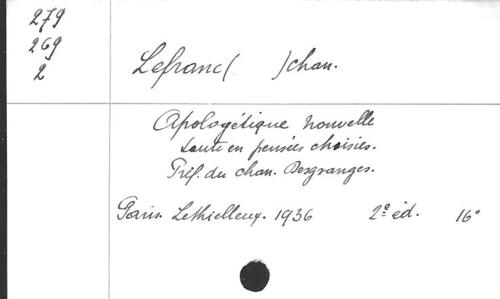 279
269
2
Lefranc (     ) chan.
Apologétique nouvelle
toute en pensées choisies.
Préf. du chan. Desgranges.
Paris. Lethielleux. 1936 2e éd. 16°